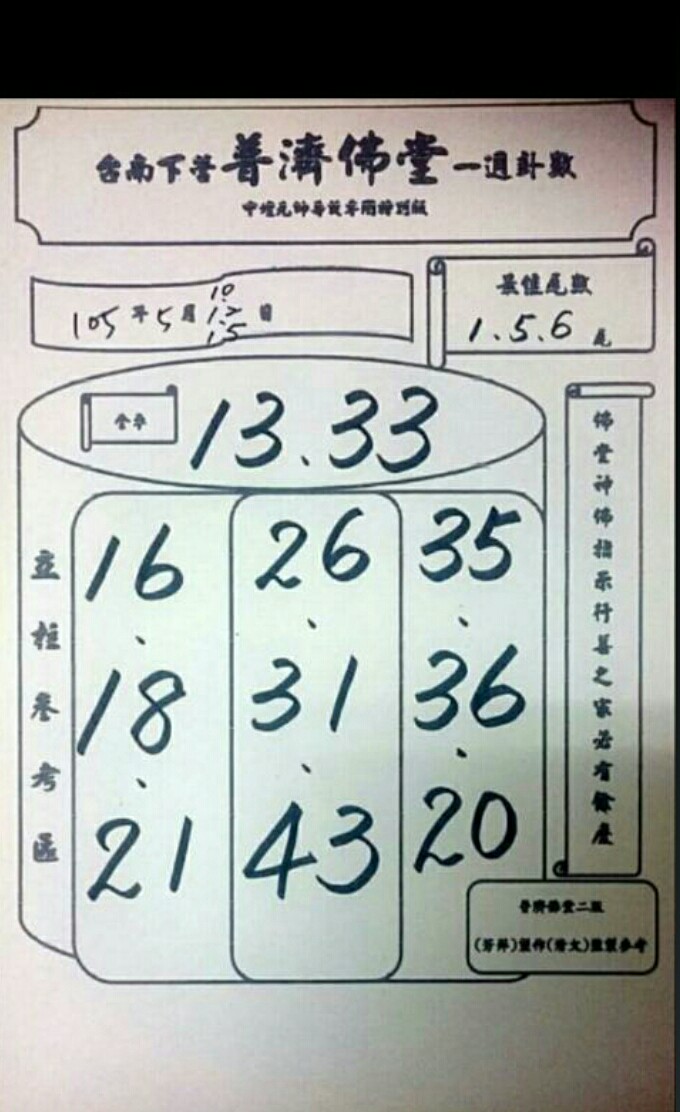 台南下營普濟佛堂一週計數
中壇元帥每設專開特別版
105年5月10.12.15日
最佳尾數
1.5.6尾
全車
13.33
立柱叄考區
16、18、21
26、31、43
35、36、20
佛堂神佛指示行善之家必有餘慶
普濟佛堂二版
製作
監製參考